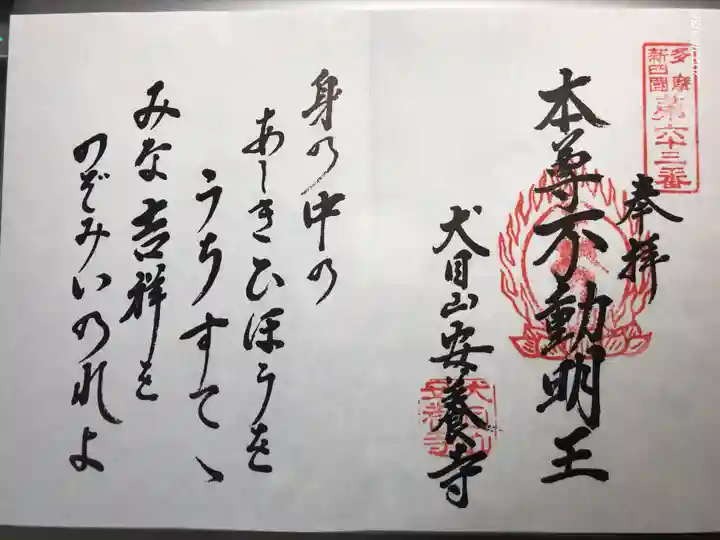 多摩
新四國
第六十三番
奉拝
本尊不動明王
犬目山安養寺
身の中の
あしきひほうを
うちすてゝ
みな吉祥を
のぞみいのれよ